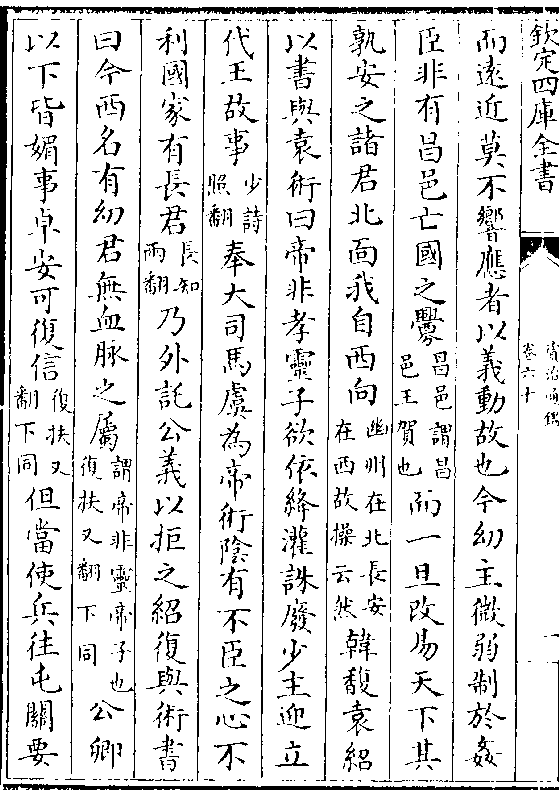 欽定四庫全書
資治通鑑
卷六十
而遠近莫不響應者以義動故也今幼主微弱制於姦
臣非有昌邑亡國之釁昌邑謂昌邑王賀也而一旦改易天下其
孰安之諸君北面我自西向幽州在北長安在西故操云然韓馥袁紹
以書與袁術曰帝非孝靈子欲依絳灌誅廢少主迎立
代王故事少詩照翻奉大司馬虞為帝術陰有不臣之心不
利國家有長君長知兩翻乃外託公義以拒之紹復與術書
曰今西名有幼君無血脉之屬謂帝非靈帝子也復扶又翻下同公卿
以下皆媚事卓安可復信復扶又翻下同但當使兵往屯關要